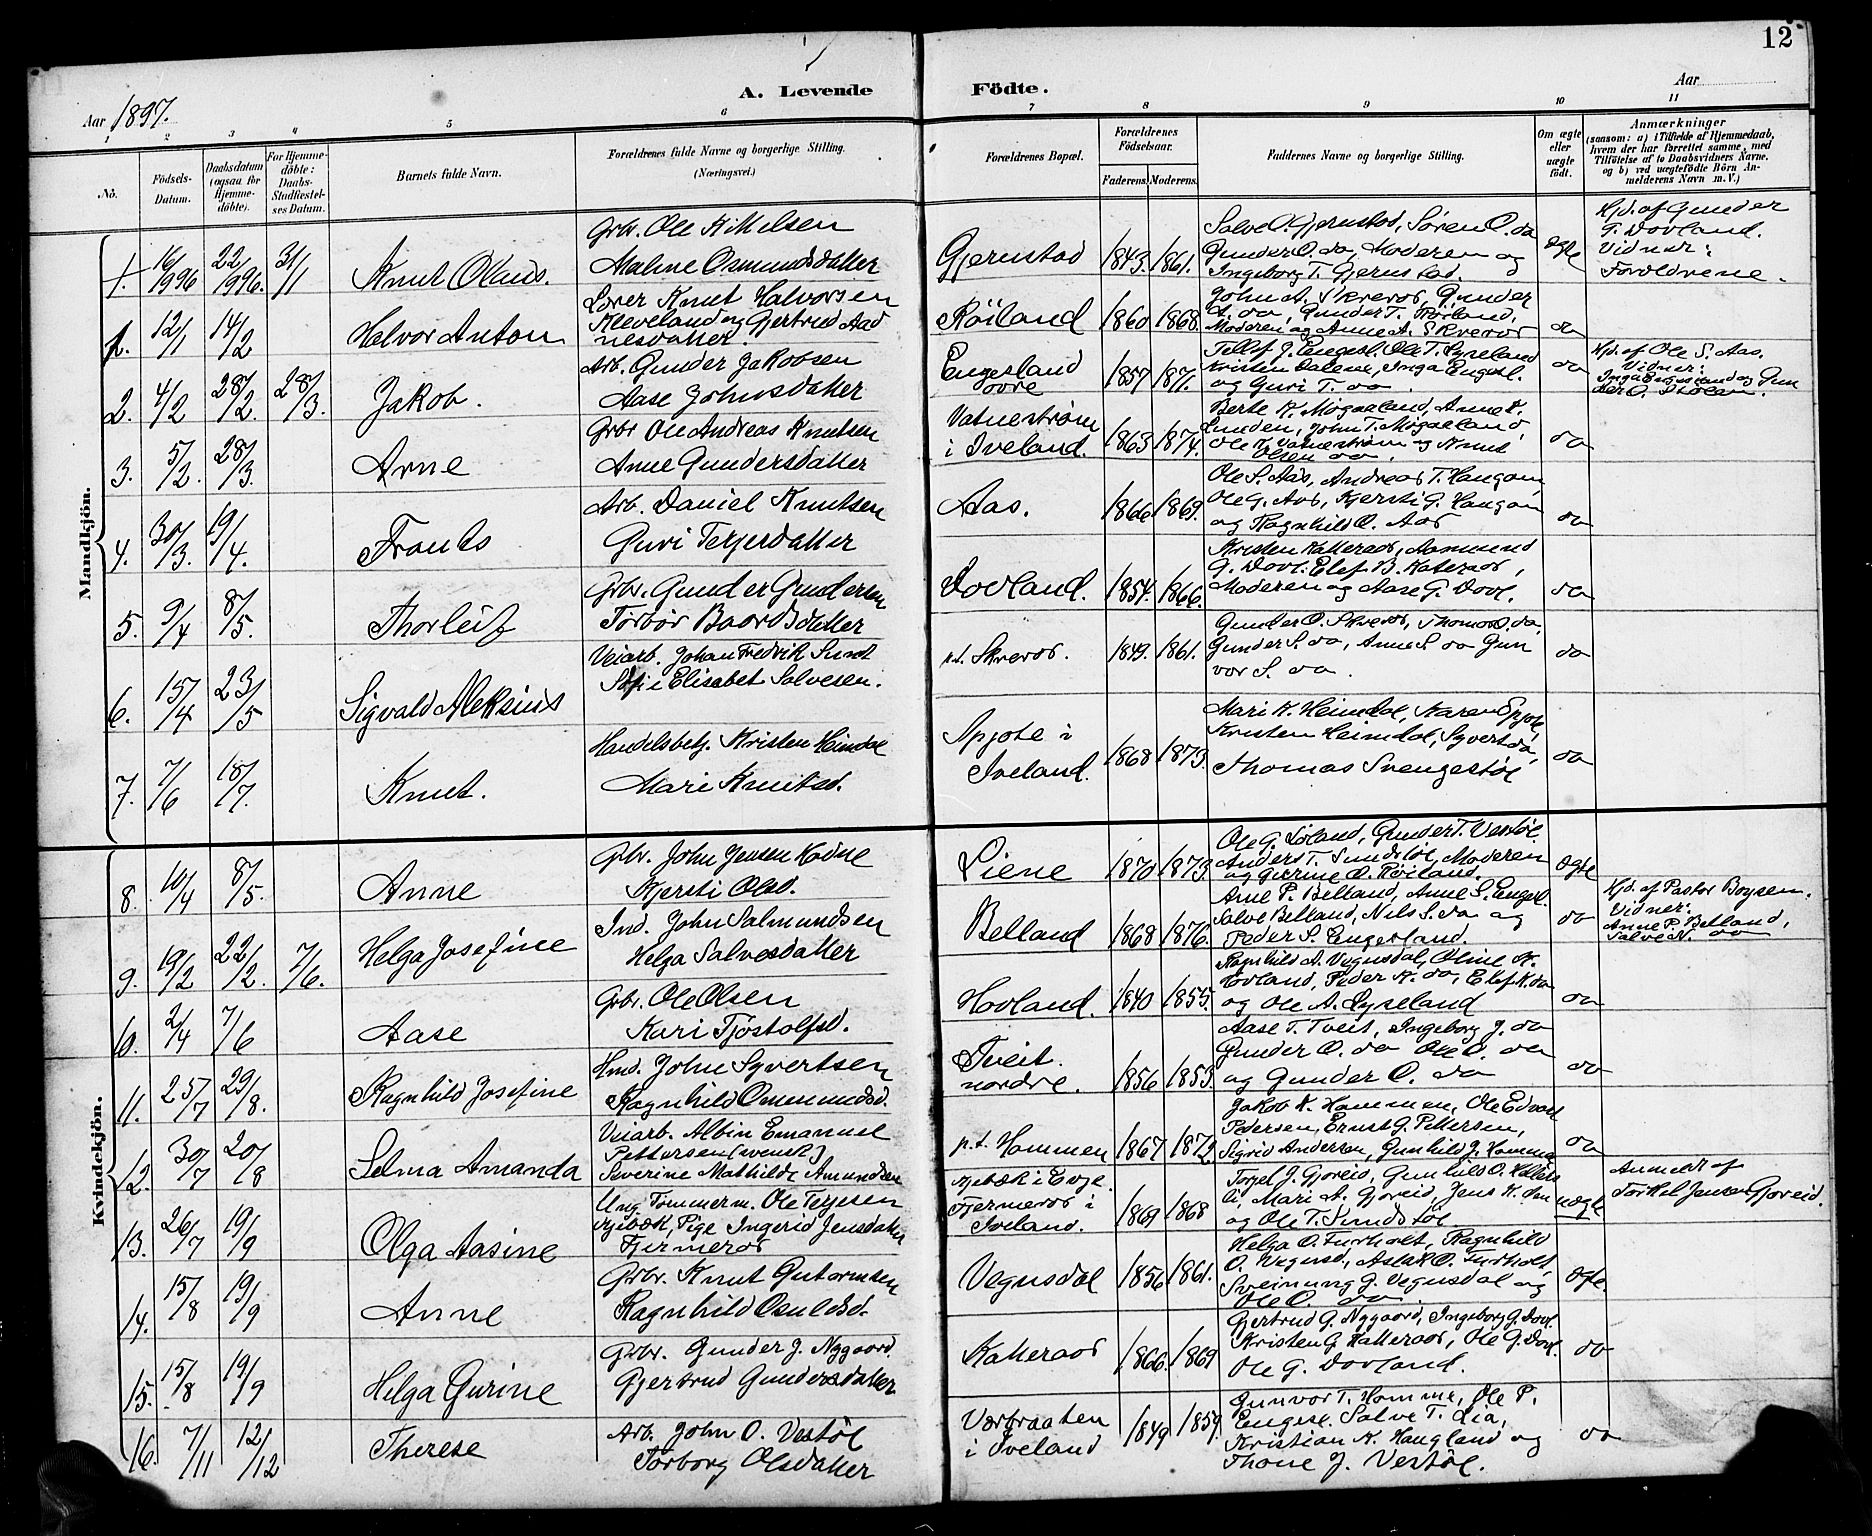 12
A. Levende Födte.
Aar 1897.
Aar
1 2 3 4 5 6 7 8 9 10 11
No.
Födsels-Datum.
Daabsdatum (ogsaa for Hjemme-döbte).
For Hjemme-döbte: Daabs-Stadfæstel-ses Datum.
Barnets fulde Navn.
Forældrenes fulde Navne og borgerlige Stilling.
(Næringsvei.)
Forældrenes Bopæl.
Forældrenes Födselsaar.
Faderens. Moderens.
Faddernes Navne og borgerlige Stilling.
Om ægte eller uægte födt.
Anmærkninger
(saasom: a) i Tilfælde af Hjemmedaab, hvem der har forrettet samme, med Tilföielse af to Daabsvidners Navne. og b) ved uægtefödte Börn An-melderens Navn m.V.)
Mandkjön.
1. 16/1996 22/1996. 31/1 Knut Olaus.
Grbr. Ole K. Nilsen
Malene Osmundsdatter
Gjernstad 1843. 1861.
Salve O. Gjernstad, Søren O. do
Gunder O. do, Moderen og
Ingeborg T. Gjernstad.
ægte
Hjd. af Gunder
T. Dovland.
Vidner:
Forældrene.
1. 12/1 14/2 Halvor Anton
Lærer Knut Halvorsen
Kleveland og Gjertrud Aad
nesdatter.
Røiland 1860 1868.
John A. Skreros, Gunder
A. do, Gunder T. Røiland,
Moderen og Anne A. Skreros
do
2. 4/2 28/2. 28/3. Jakob.
Arb. Gunder Jakobsen
Aase Johnsdatter
Engesland
øvre 1857 1871.
Tellef J. Engesl. Ole T. Lyseland
Kristen Dalene, Inga Engesl.
og Guri T. do.
do
Hjd. af Ole S. Aas.
Vidner:
Inga Engesland og Gun
der O. Stølen.
3. 5/2. 28/3. Arne
Grbr Ole Andreas Knutsen
Anne Gundersdatter
Vatnestrøm
i Iveland. 1863 1874.
Berte K. Mogaaland, Anne K.
Lunden, John T. Mogaaland,
Ole K. Vatnestrøm og Knut
Olsen do.
do
4. 30/3. 19/4. Frants
Arb. Daniel Knutsen
Guri Terjesdatter
Aas. 1866 1869.
Ole S. Aas, Andreas T. Haugom,
Ole G. Aas, Kjersti G. Haugom
og Ragnhild O. Aas
do
5. 9/4 8/5. Thorleif
Grbr. Gunder Gundersen
Torbør Baardsdatter
Dovland. 1854. 1866.
Kristen Katteraas, Aanmund
G. Dovl. Elef B. Katteraas,
Moderen og Aase G. Dovl.
do
6. 15/4 23/5 Sigvald Aleksius
Veiarb. Johan Fredrik Sund
Sofie Elisabet Salvesen.
p.t. Skreros. 1849. 1861.
Gunder O. Skreros, Thomas O. do,
Gunder S. do, Anne S. do Gun
vor S. do.
do
7. 7/6 18/7. Knut.
Handelsbetj. Kristen Heimdal
Mari Knutsd.
Spjote i
Iveland. 1868 1873.
Mari K. Heimdal, Karen Spjote,
Kristen Heimdal, Syvert do,
Thomas Svengestøl
do
Kvindekjön.
8. 10/4 8/5. Anne
Grbr. John Jensen
Kjersti Olsd.
Liene 1870 1873.
Ole G. Loland, Gunder T. Vestøl
Anders T. Sundstøl, Moderen
og Gurine O. Røiland.
ægte
9. 19/2 22/2. 7/6. Helga Josefine
Ind. John Salmundsen
Helga Salvesdatter
Belland 1868 1876.
Arne P. Belland, Anne S. Engesl.
Salve Belland, Nils S. do og
Peder S. Engesland.
do
Hjd. af Pastor Boysen.
Vidner:
Anne P. Belland,
Salve N. do
10. 2/4 7/6 Aase
Grbr. Ole Olsen
Kari Tjøstolfsd.
Hovland. 1840 1855.
Ragnhild A. Vegusdal, Oline K.
Hovland, Peder K. do, Elef K. do
og Ole A. Lyseland
do
11. 25/7 29/8. Ragnhild Josefine
Hmd. John Syvertsen
Ragnhild Ommundsd.
Tveit.
nordre. 1856 1853.
Aase T. Tveit, Ingeborg J. do
Gunder O. do Ole O. do
og Gunder O. do
do
12. 30/7 20/8 Selma Amanda
Veiarb. Albin Emanuel
Pettersen (svensk)
Severine Mathilde Amundsen
p.t. Hommen 1867 1872.
Jakob K. Hommen, Ole Edvard
Pedersen, Ernst G. Pettersen,
Sigrid Andersen, Gunhild J. Homme
do
13. 26/7 19/9 Olga Aasine
Ung. Tømmerm. Ole Terjesen
Kjebæk, Pige Ingerid Jensdatter
Fjermeros
Kjebæk i Evje.
Fjermeros i
Iveland. 1869 1868
Torjel J. Gjoreid, Gunhild O.
Mari A. Gjoreid, Jens K. do
og Ole T. Sundstøl
uægte
Anmeldt af
Torkel Jensen Gjoreid.
14. 15/8 19/9 Anne
Grbr. Knut Gutormsen
Ragnhild Osuldsd.
Vegusdal 1856 1861.
Helga O. Furholt, Ragnhild
O. Vegusd, Aslak O. Furholt,
Sveinung J. Vegusdal og
Ole O. do.
ægte.
15. 15/8 19/9 Helga Gurine
Grbr. Gunder J. Nygaard
Gjertrud Gundersdatter
Katteraas 1866. 1869
Gjertrud G. Nygaard, Ingeborg G. Dovl.
Kristen G. Katteraas, Ole G. Dovl.
Ole G. Dovland.
do
16. 7/11 12/12 Therese
Arb. John O. Vestøl
Torborg Olsdatter
Værbraaten
i Iveland 1849 1859.
Gunvor T. Homme, Ole P.
Engesl. Salve T. Lia,
Kristian K. Haugland og
Thone J. Vestøl.
do